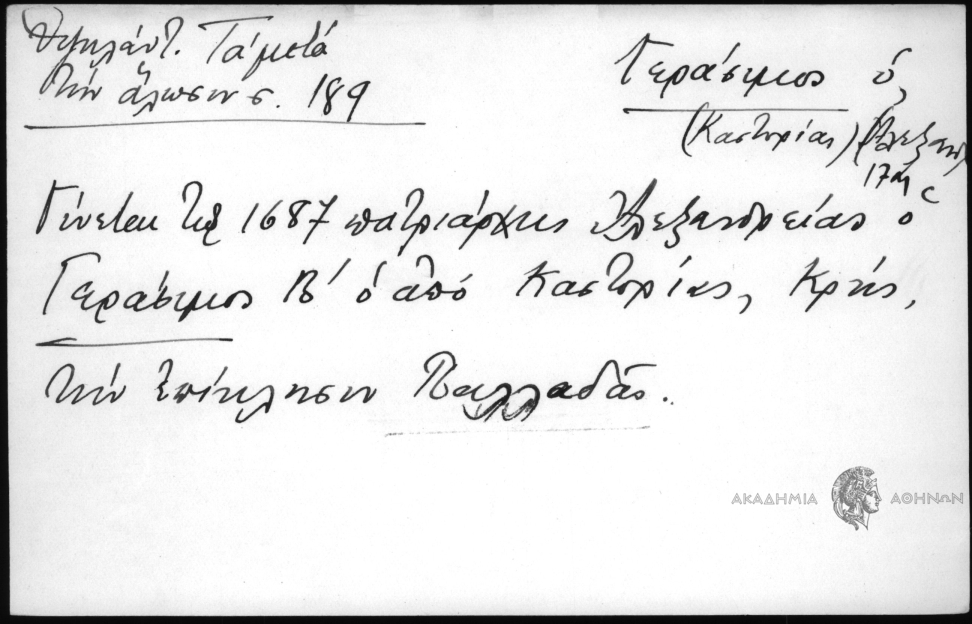 Ὑψηλάντ. Τὰ μετὰ
τὴν ἅλωσιν σ. 189
Γεράσιμος ὁ,
(Καστορίας) (Ἀλεξαν)
17ος
Γίνεται τῷ 1687 πατριάρχης Ἀλεξανδρείας ὁ
Γεράσιμος Β' ὁ ἀπὸ Καστορίας, Κρής,
τὴν ἐπίκλησιν Παλλαδᾶς.
ΑΚΑΔΗΜΙΑ ΑΘΗΝΩΝ